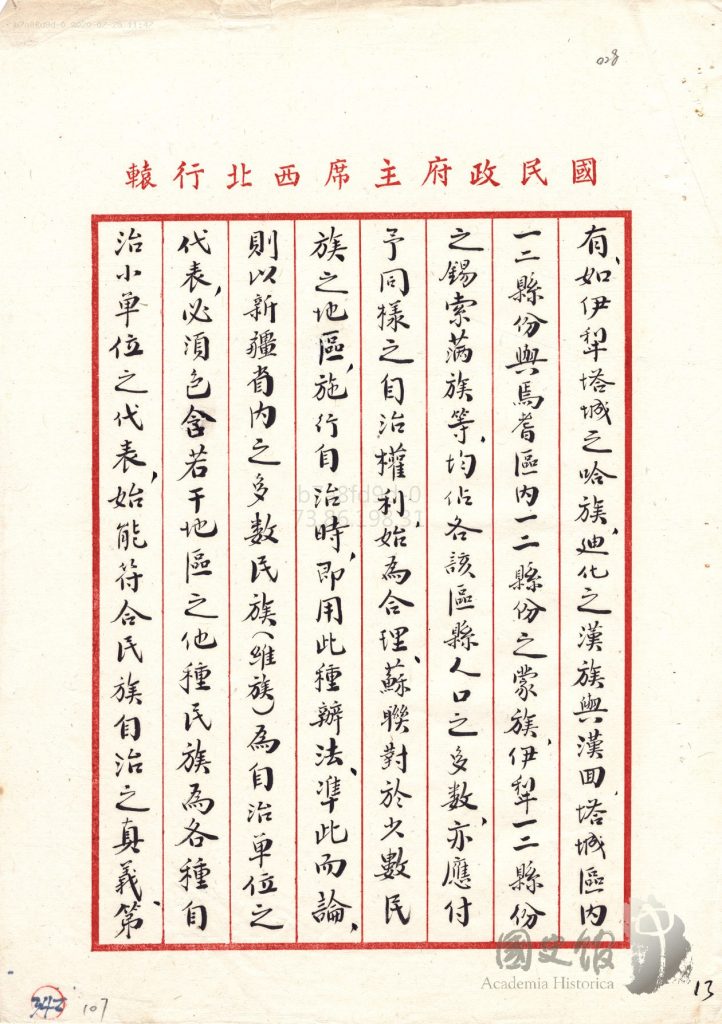 b7a8fd9d-0 2020-07-28 11:47
008
國民政府主席西北行轅
有、如伊犁塔城之哈族、迪化之漢族與漢回、塔城區內
一二縣份與焉耆區內一二縣份之蒙族、伊犁一二縣份
之錫索滿族等、均佔各該區縣人口之多數、亦應付
予同樣之自治權利、始為合理、蘇聯對於少數民
族之地區、施行自治時、即用此種辦法、準此而論、
則以新疆省內之多數民族(維族)為自治單位之
代表、必須包含若干地區之他種民族為各種自
治小單位之代表、始能符合民族自治之真義、第、
國史館
Academia Historica
107
13